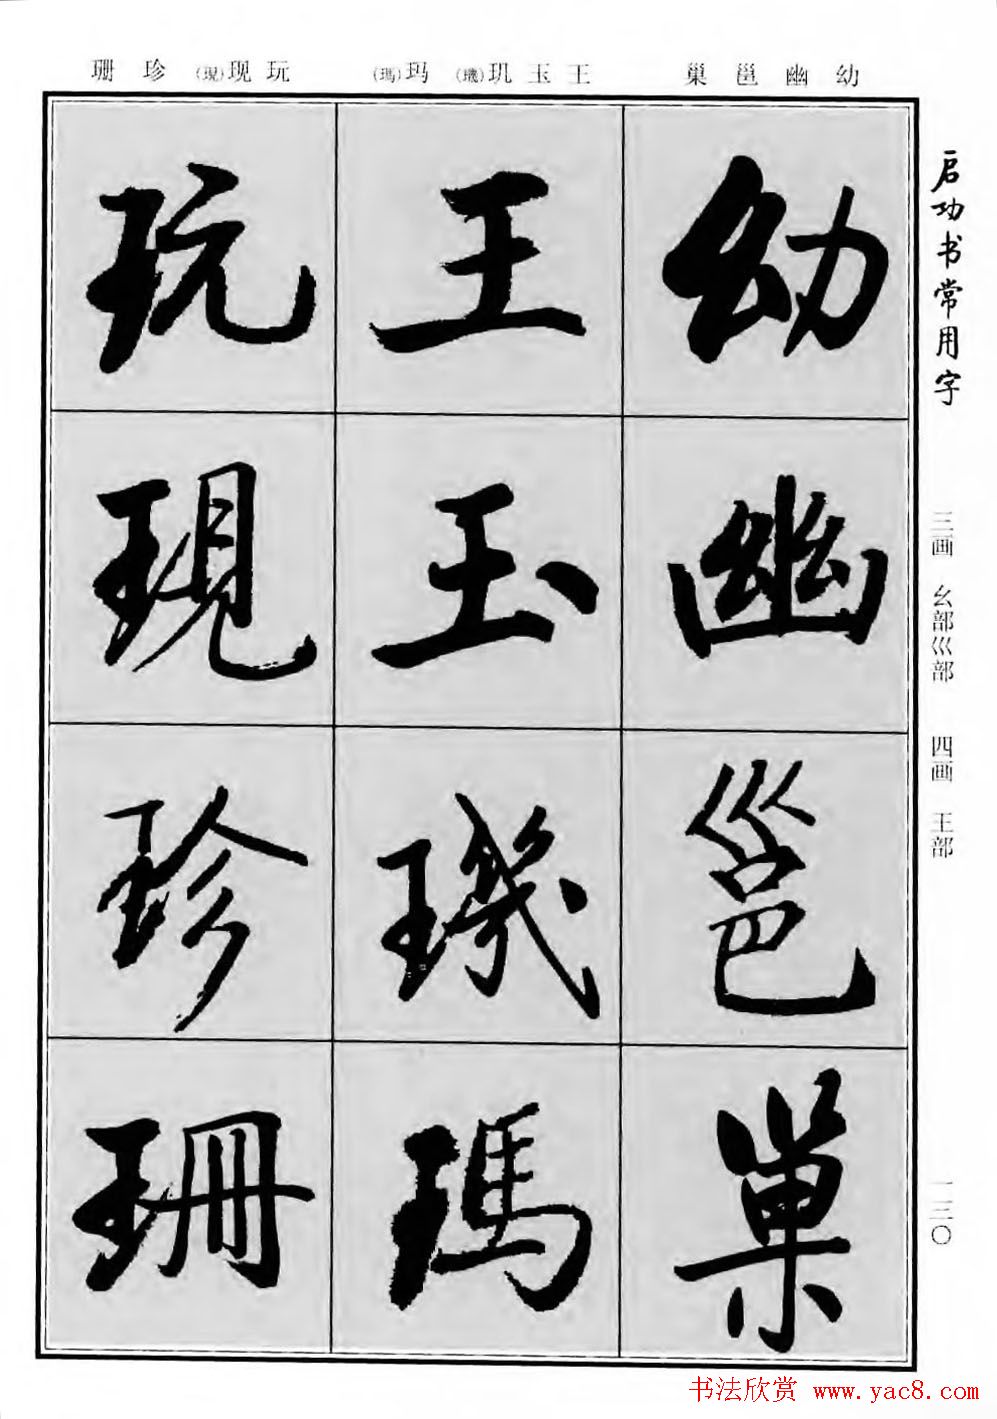 幼 幽 邕 巢 王 玉 玑(璣) 玛(瑪) 玩 现(現) 珍 珊
启功书常用字
三画 幺部巛部 四画 王部
一三〇
幼
幽
邕
巢
王
玉
璣
瑪
玩
現
珍
珊
书法欣赏 www.yac8.com